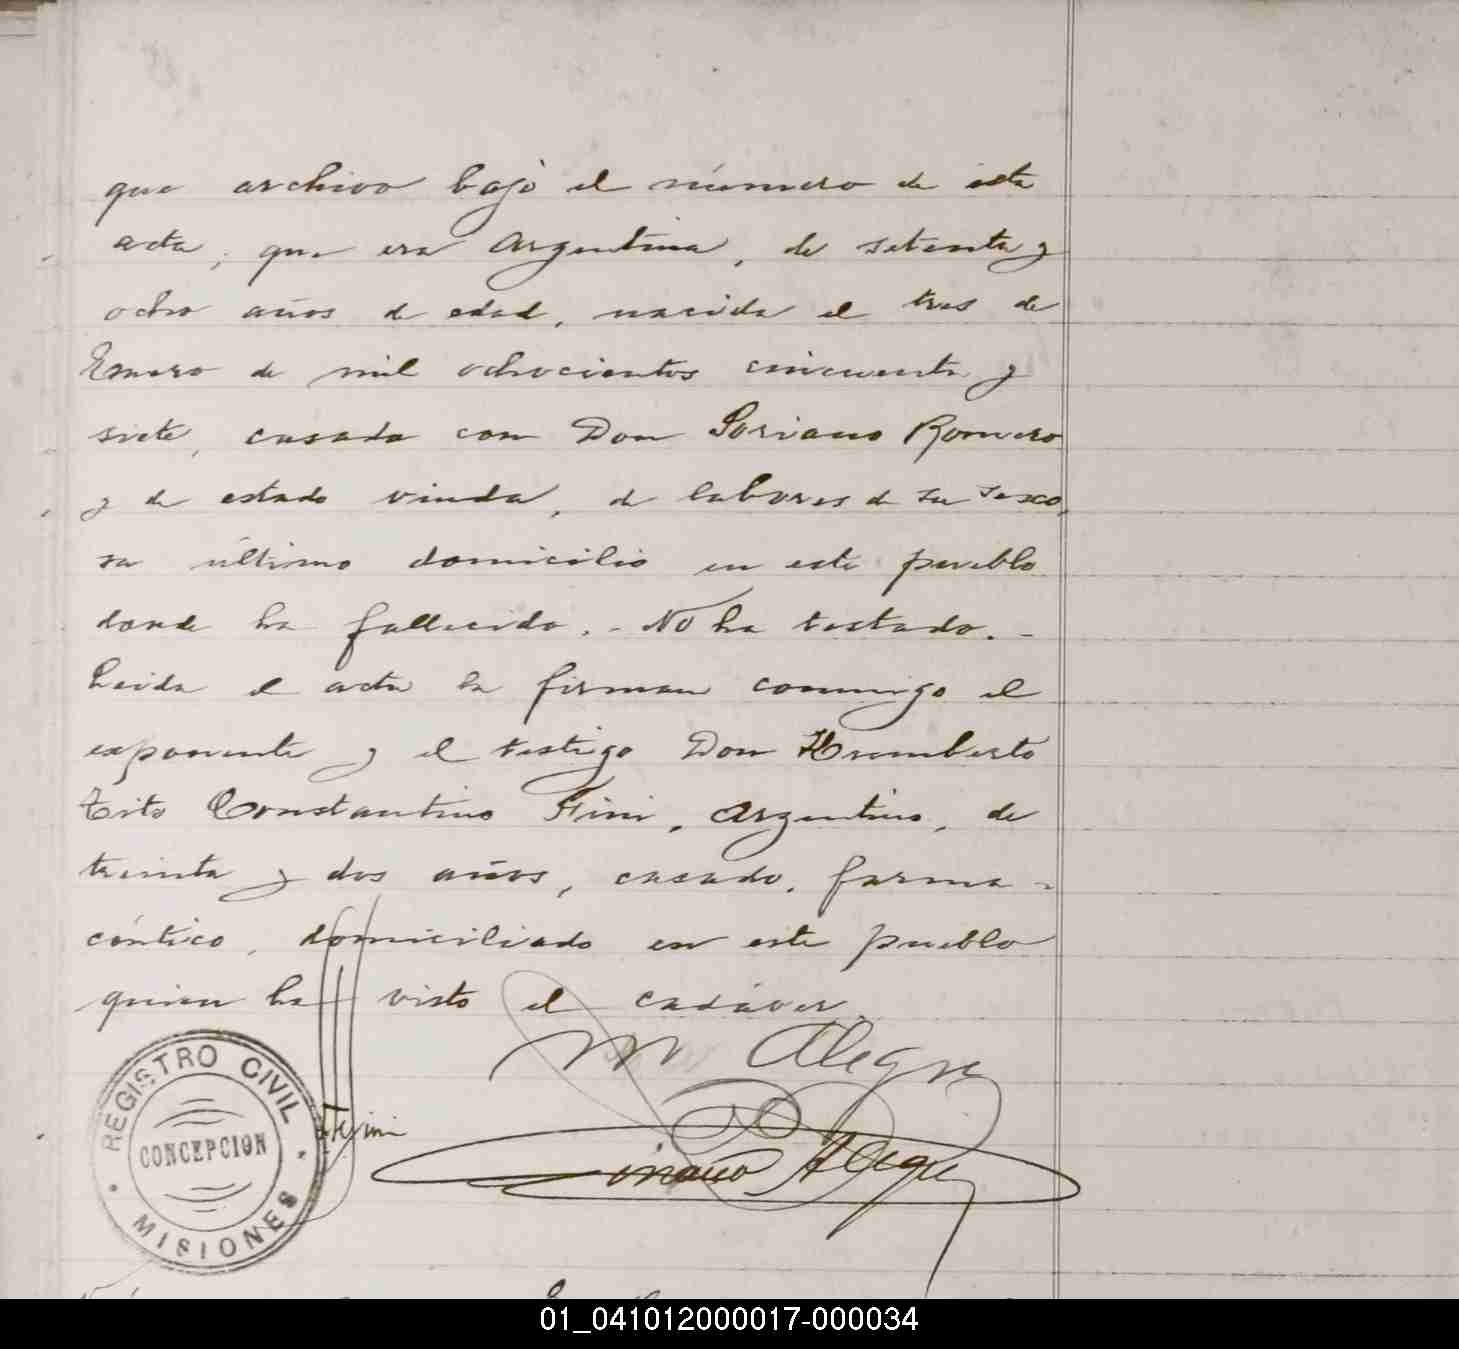 que archivo bajo el número de esta
acta; que era Argentina, de setenta y
ocho años de edad, nacida el tres de
Enero de mil ochocientos cincuenta y
siete, casada con Don Soriano Romero
y de estado viuda, de labores de su sexo,
su último domicilio en este pueblo
donde ha fallecido. - No ha testado. -
Leida el acta la firman conmigo el
exponente y el testigo Don Humberto
Tito Constantino Fini, Argentino, de
treinta y dos años, casado, farma-
céutico, domiciliado en este pueblo
quien ha visto el cadáver.
M Alegre
REGISTRO CIVIL
CONCEPCION
MISIONES
Alegre
01_041012000017-000034